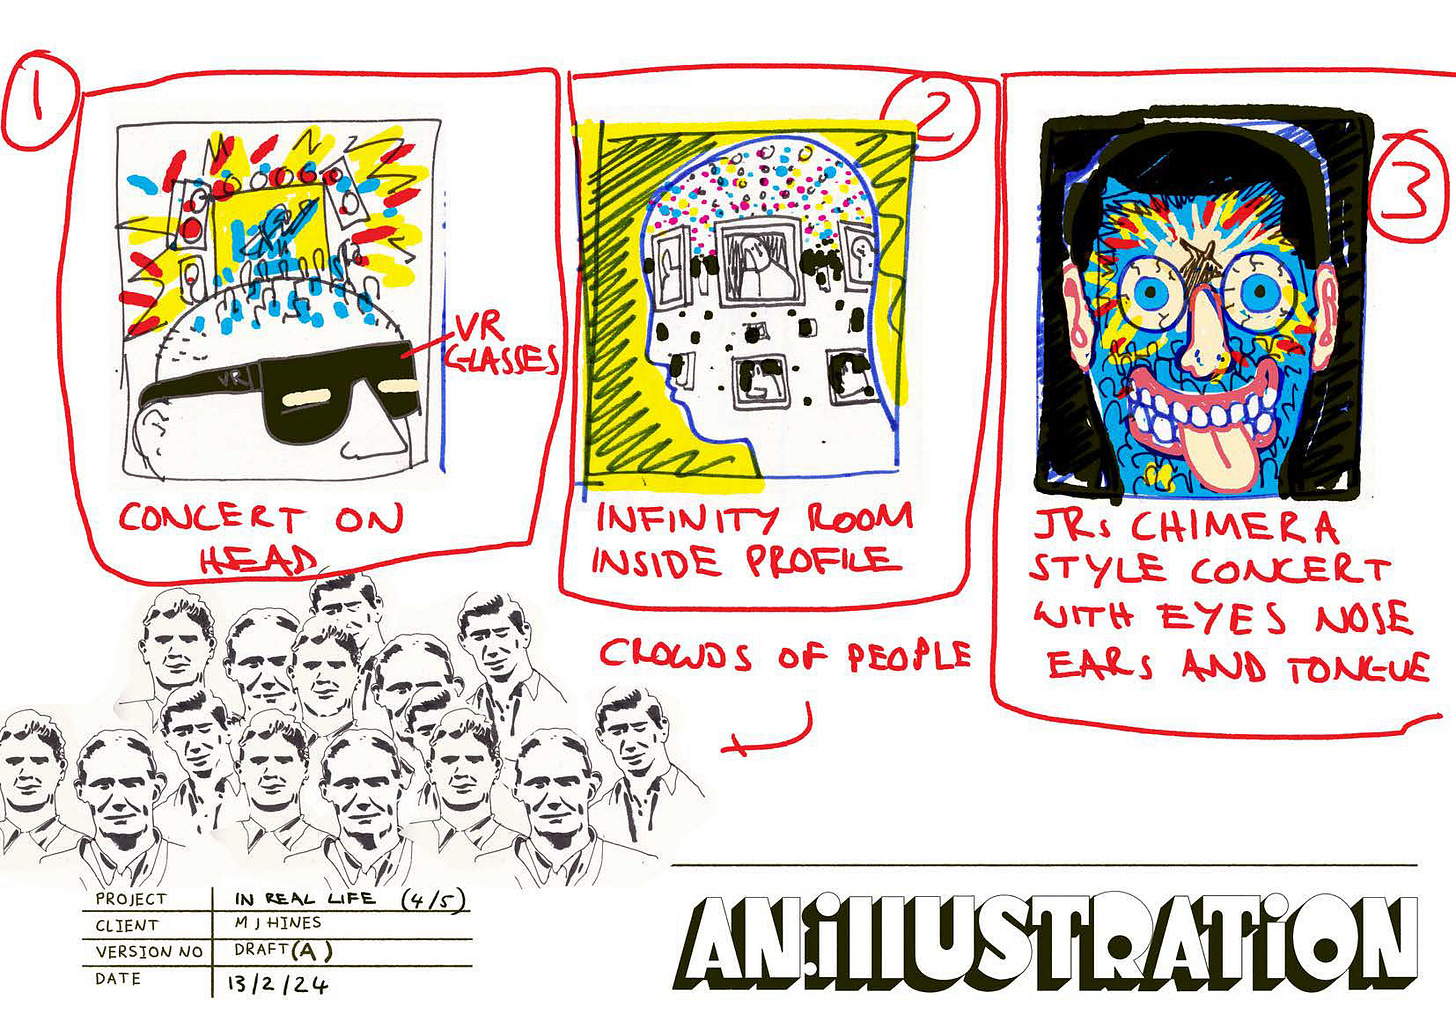 1
VR
GLASSES
VR
CONCERT ON
HEAD
2
INFINITY ROOM
INSIDE PROFILE
3
JRs CHIMERA
STYLE CONCERT
WITH EYES NOSE
EARS AND TONGUE
CROWDS OF PEOPLE
PROJECT IN REAL LIFE (4/5)
CLIENT M J HINES
VERSION NO DRAFT (A)
DATE 13/2/24
AN:illUSTRATiON